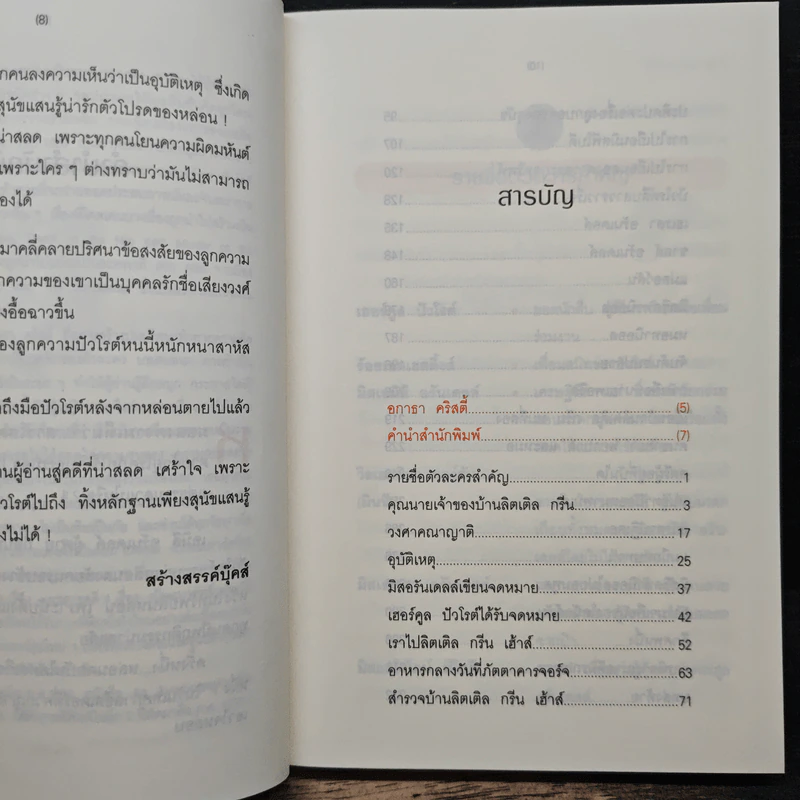 (8)
กคนลงความเห็นว่าเป็นอุบัติเหตุ ซึ่งเกิด
สุนัขแสนรู้น่ารักตัวโปรดของหล่อน !
น่าสลด เพราะทุกคนโยนความผิดมหันต์
เพราะใคร ๆ ต่างทราบว่ามันไม่สามารถ
องได้
มาคลี่คลายปริศนาข้อสงสัยของลูกความ
กความของเขาเป็นบุคคลรักชื่อเสียงวงศ์
งอื้อฉาวขึ้น
องลูกความปัวโรต์หนนี้หนักหนาสาหัส
ถึงมือปัวโรต์หลังจากหล่อนตายไปแล้ว
านผู้อ่านสู่คดีที่น่าสลด เศร้าใจ เพราะ
ัวโรต์ไปถึง ทิ้งหลักฐานเพียงสุนัขแสนรู้
งไม่ได้ !
สร้างสรรค์บุ๊คส์
สารบัญ
อกาธา คริสตี้ (5)
คำนำสำนักพิมพ์ (7)
รายชื่อตัวละครสำคัญ 1
คุณนายเจ้าของบ้านลิตเติล กรีน 3
วงศาคณาญาติ 17
อุบัติเหตุ 25
มิสอรันเดลล์เขียนจดหมาย 37
เฮอร์คูล ปัวโรต์ได้รับจดหมาย 42
เราไปลิตเติล กรีน เฮ้าส์ 52
อาหารกลางวันที่ภัตตาคารจอร์จ 63
สำรวจบ้านลิตเติล กรีน เฮ้าส์ 71